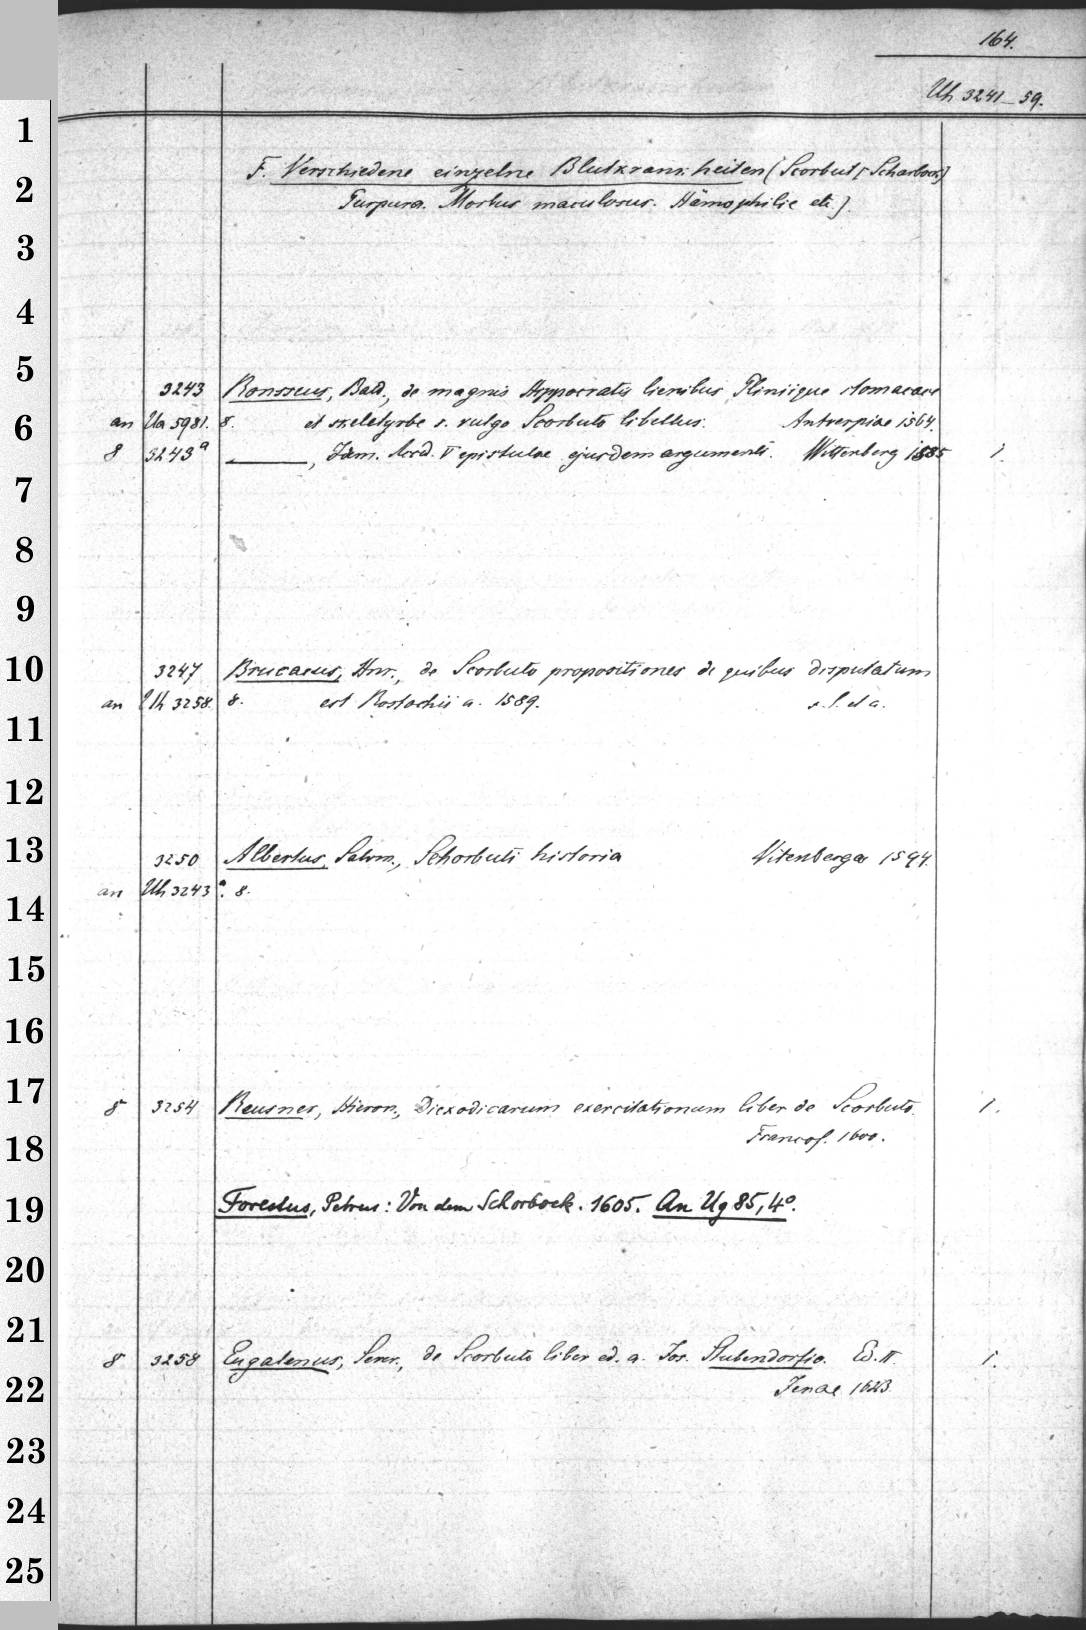 164.
Uh 3241-59.
F. Verschiedene einzelne Blutkrankheiten (Scorbut [Scharbock]
Purpura. Morbus maculosus. Hämophilie etc.)
3243 Ronsseus, Bald., de magnis Hippocratis lienibus Pliniique stomacace
an Ua 5981. 8. et sceletyrbe s. vulgo Scorbuto libellus. Antverpiae 1564.
8 3243a ———, Idem. Acced. V epistulae ejusdem argumenti. Wittenberg 1585 1.
3247 Brucaeus, Hnr., de Scorbuto propositiones de quibus disputatum
an Uh 3258. 8. est Rostochii a. 1589. s. l. et a.
3250 Albertus, Salom., Schorbuti historia Vitenbergae 1594.
an Uh 3243a. 8.
8 3254 Reusner, Hieron., Diexodicarum exercitationum liber de Scorbuto. 1.
Francof. 1600.
Forestus, Petrus: Von dem Schorbock. 1605. An Ug 85, 4°.
8 3258 Eugalenus, Sever., de Scorbuto liber ed. a. Jos. Stubendorfio. Ed. II. 1.
Jenae 1623.
1
2
3
4
5
6
7
8
9
10
11
12
13
14
15
16
17
18
19
20
21
22
23
24
25